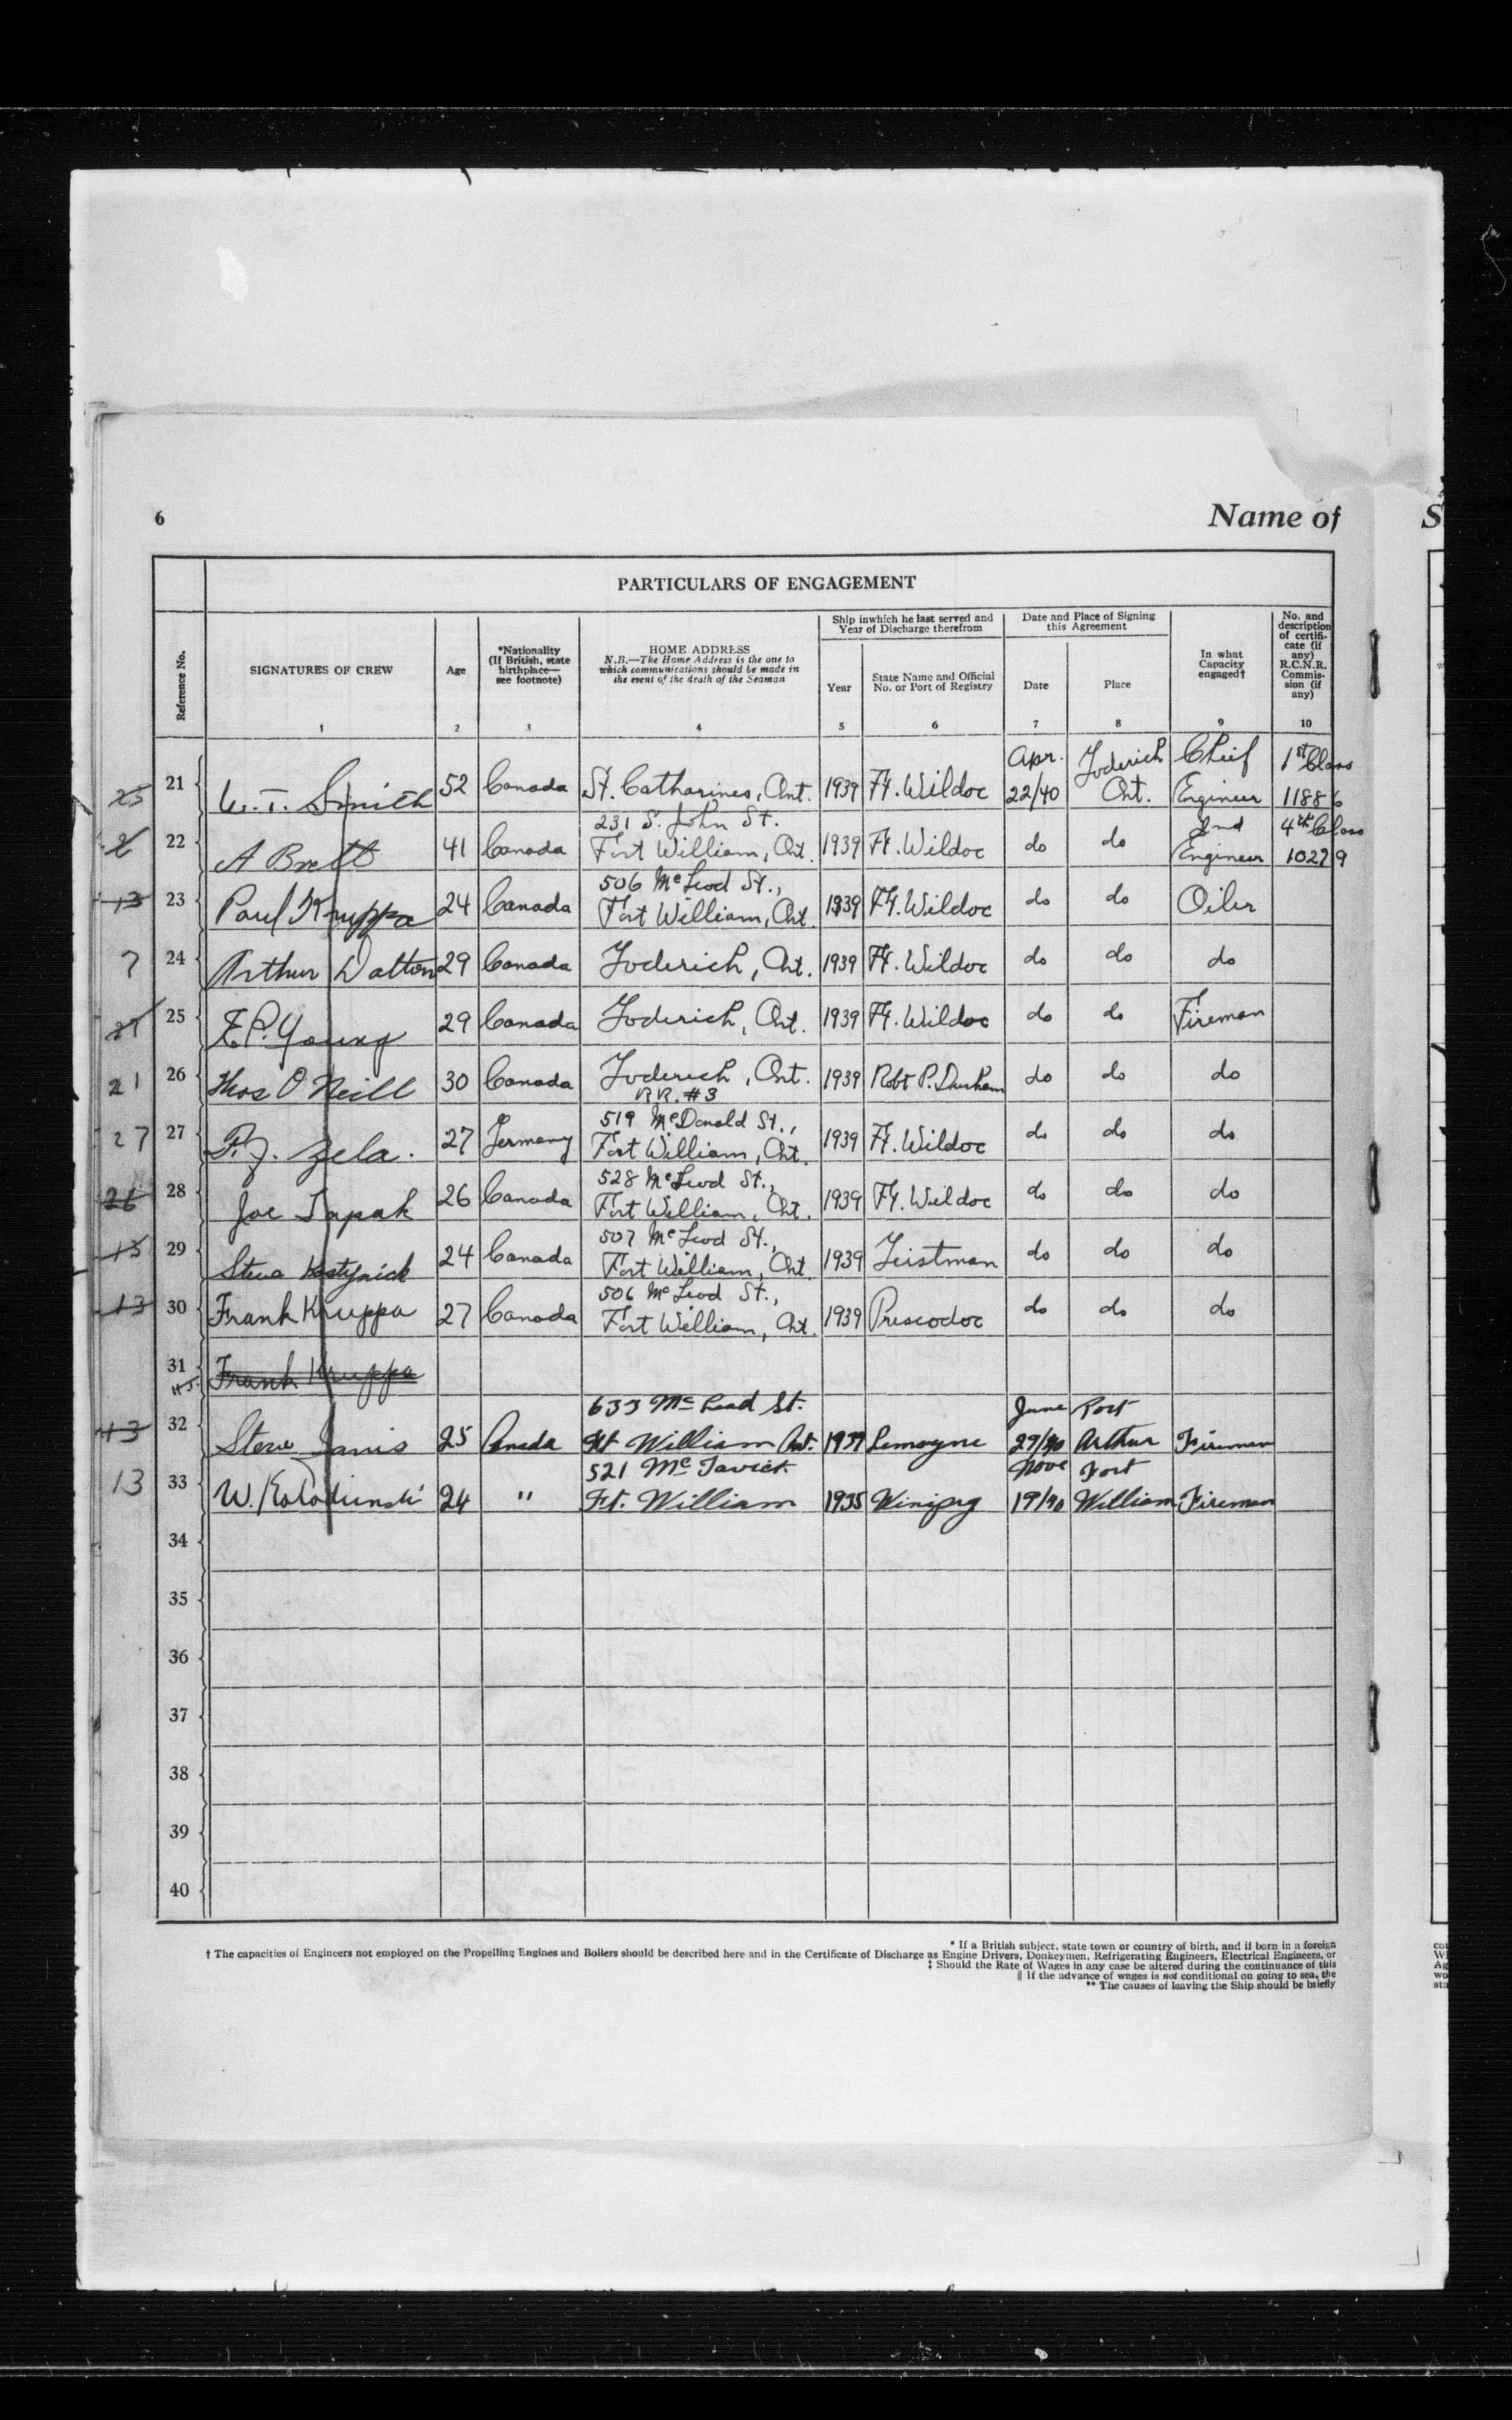 6
Name of
S
PARTICULARS OF ENGAGEMENT
Reference No.
SIGNATURES OF CREW
1
Age
2
*Nationality
(If British, state
birthplace—
see footnote)
3
HOME ADDRESS
N.B.—The Home Address is the one to
which communications should be made in
the event of the death of the Seaman
4
Ship in which he last served and
Year of Discharge therefrom
Year
5
State Name and Official
No. or Port of Registry
6
Date and Place of Signing
this Agreement
Date
7
Place
8
In what
Capacity
engaged†
9
No. and
description
of certifi-
cate (if
any)
R.C.N.R.
Commis-
sion (if
any)
10
Apr. Goderich Chief 1st Class
25 21 W. T. Smith 52 Canada St. Catharines, Ont. 1939 Ft. Wildoc 22/40 Ont. Engineer 11886
231 S. John St. 2nd 4th Class
2 22 A Brett 41 Canada Fort William, Ont. 1939 Ft. Wildoc do do Engineer 10279
506 McLeod St.,
13 23 Paul Kruppa 24 Canada Fort William, Ont. 1939 Ft. Wildoc do do Oiler
7 24 Arthur Dalton 29 Canada Goderich, Ont. 1939 Ft. Wildoc do do do
25 E.P. Young 29 Canada Goderich, Ont. 1939 Ft. Wildoc do do Fireman
21 26 Thos O'Neill 30 Canada Goderich, Ont. 1939 Robt P. Durham do do do
RR. #3
519 McDonald St.,
27 27 Zela. 27 Germany Fort William, Ont. 1939 Ft. Wildoc do do do
528 McLeod St.,
26 28 Joe Sapak 26 Canada Fort William, Ont. 1939 Ft. Wildoc do do do
507 McLeod St.,
13 29 Steve 24 Canada Fort William, Ont. 1939 do do do
506 McLeod St.,
13 30 Frank Kruppa 27 Canada Fort William, Ont. 1939 Prescodoc do do do
31 Frank Kruppa
633 McLeod St. June Port
13 32 Steve Janis 25 Canada Ft William Ont. 1939 Lemoyne 29/40 Arthur Fireman
521 McTavish Nove Fort
13 33 W. Kolodinski 24 " Ft. William 1935 Winipeg 19/40 William Fireman
34
35
36
37
38
39
40
* If a British subject, state town or country of birth, and if born in a foreign
† The capacities of Engineers not employed on the Propelling Engines and Boilers should be described here and in the Certificate of Discharge as Engine Drivers, Donkeymen, Refrigerating Engineers, Electrical Engineers, or
‡ Should the Rate of Wages in any case be altered during the continuance of this
|| If the advance of wages is not conditional on going to sea, the
** The causes of leaving the Ship should be briefly